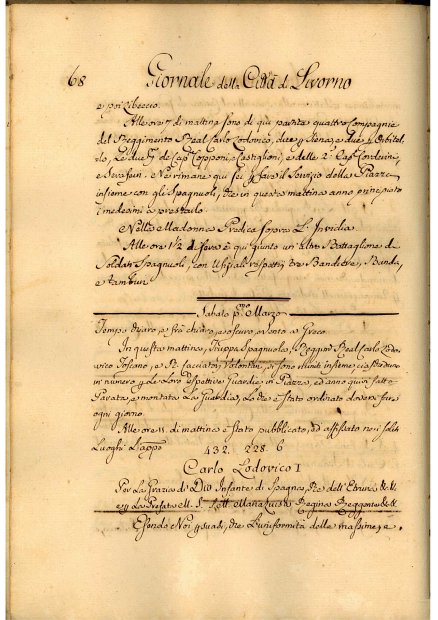 68 Giornale della Città di Livorno
e poi Libeccio.
Alle ore 7 di mattina sono di qui partite quattro Compagnie
del Reggimento Real Carlo Lodovico, due p. Siena, e due p. Orbitel,
lo, Le due di Cap. Copponi, e Castiglioni, e delle 2. Cap. Contesini,
e Serafini. Ne rimane qui sei p. fare il Servizio della Piazza
insieme con gli Spagnuoli, che in questa mattina anno principiato
i medesimi a prestarlo.
Nella Madonna Predica sopra L'Invidia
Alle ore 1/2 di sera è qui giunto un altro Battaglione di
Soldati Spagnuoli, con Ufiziali rispetti, tre Bandiere, Banda,
e tamburi
Sabato p.mo Marzo
Tempo vario, e frà chiaro, e oscuro, vento a Greco.
In questa mattina, Truppa Spagnuola, Reggio Real Carlo Lodo,
vico Toscano, e R. Cacciatori Volontari, si sono riuniti insieme ciascheduno
in numero p. Le Loro rispettive Guardie in Piazza, ed anno quivi fatto
Parata, e montata La Guardia, Lo che è stato ordinato doversi fare
ogni giorno.
Alle ore 11. di mattina è stato pubblicato, ed affissato nei soliti
Luoghi L'appo 432. 228. 6
Carlo Lodovico I
Per La Grazia di Dio Infante di Spagna, Re dell'Etruria &c.
e p. La Prefata M. S. Maria Luisa Regina Reggente &c.
Essendo Noi persuasi, che L'uniformità delle massime, e